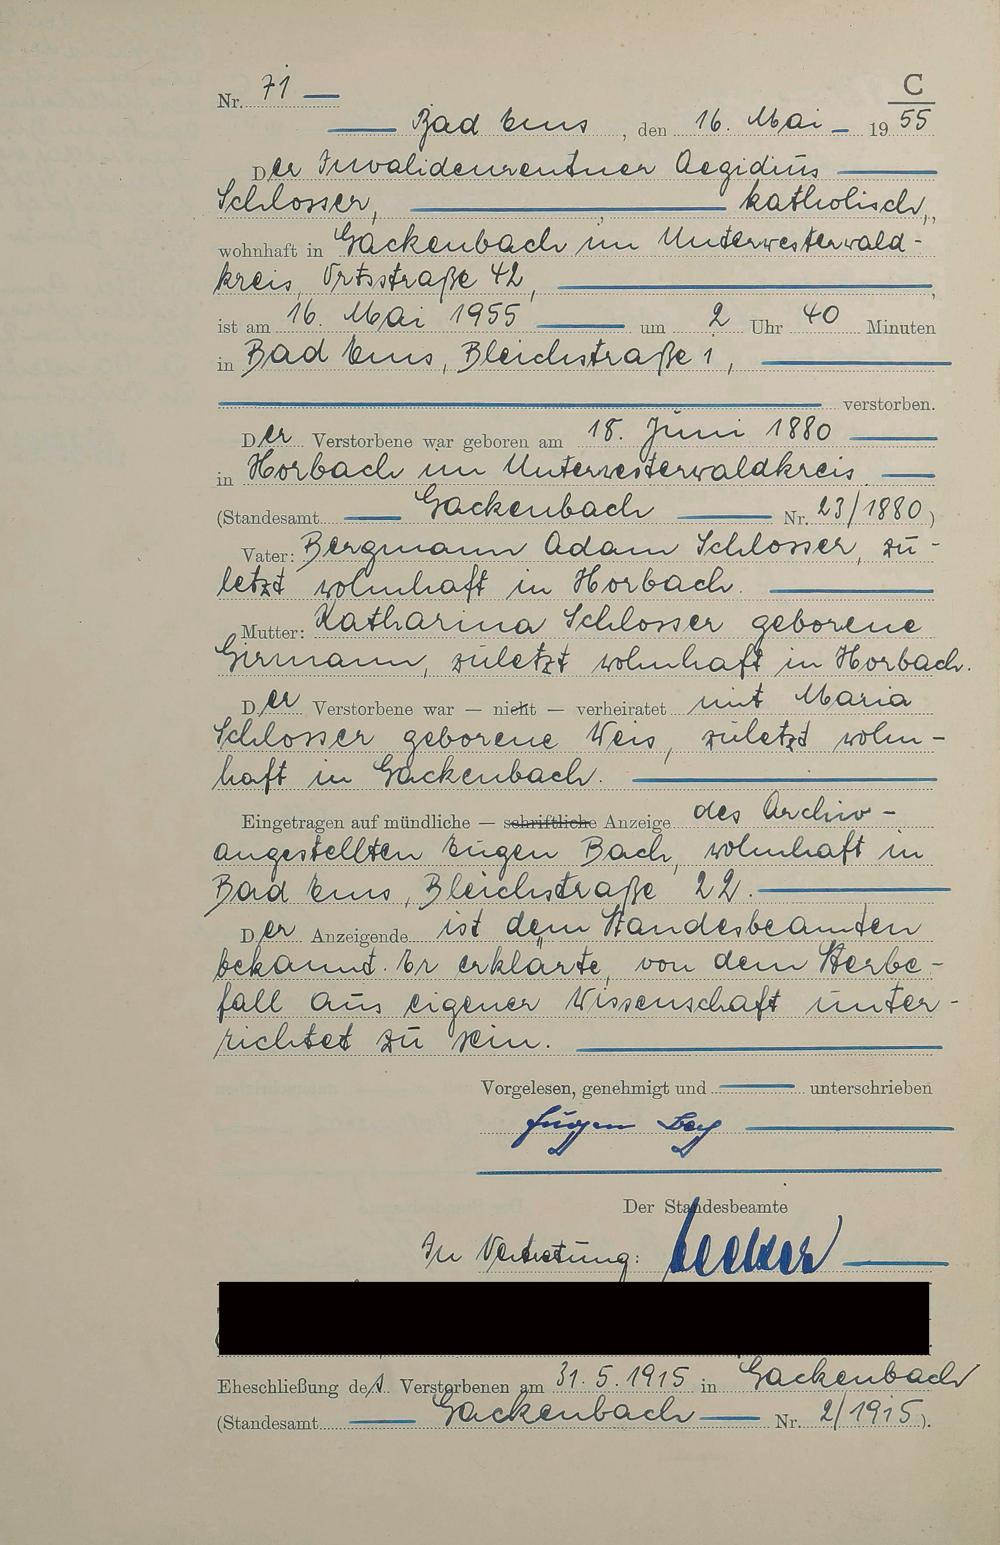 C
Nr. 71
Bad Ems, den 16. Mai 1955
Der Invalidenrentner Aegidius
Schlosser, katholisch,
wohnhaft in Gackenbach im Unterwesterwald-
kreis, Ortsstraße 42,
ist am 16. Mai 1955 um 2 Uhr 40 Minuten
in Bad Ems, Bleichstraße 1,
verstorben.
Der Verstorbene war geboren am 18. Juni 1880
in Horbach im Unterwesterwaldkreis
(Standesamt Gackenbach Nr. 23/1880)
Vater: Bergmann Adam Schlosser, zu-
letzt wohnhaft in Horbach.
Mutter: Katharina Schlosser geborene
Girmann, zuletzt wohnhaft in Horbach.
Der Verstorbene war — nicht — verheiratet mit Maria
Schlosser geborene Weis, zuletzt wohn-
haft in Gackenbach.
Eingetragen auf mündliche — schriftliche Anzeige des Archiv-
angestellten Eugen Bach, wohnhaft in
Bad Ems, Bleichstraße 22.
Der Anzeigende ist dem Standesbeamten
bekannt. Er erklärte, von dem Sterbe-
fall aus eigener Wissenschaft unter-
richtet zu sein.
Vorgelesen, genehmigt und unterschrieben
Eugen
Der Standesbeamte
In Vertretung:
Eheschließung des Verstorbenen am 31.5.1915 in Gackenbach
(Standesamt Gackenbach Nr. 2/1915).